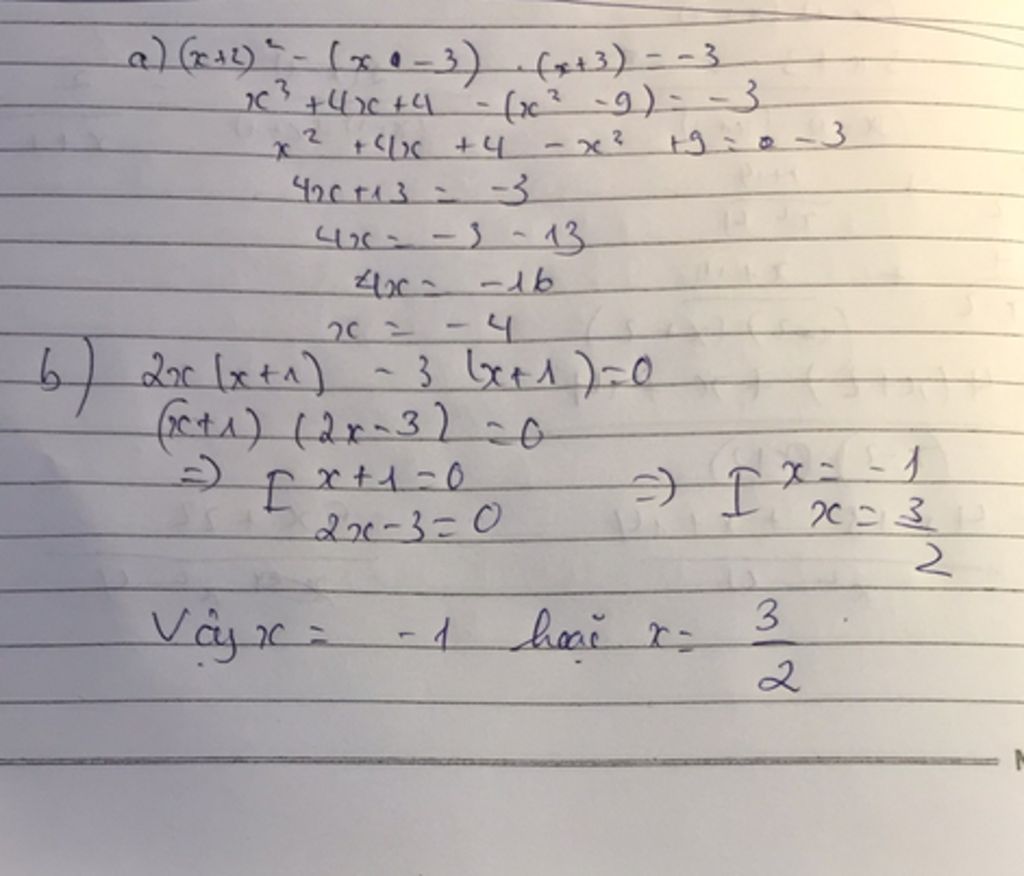 a) (x+2)² - (x - 3) . (x+3) = -3
x³ + 4x + 4 - (x² - 9) = -3
x² + 4x + 4 - x² + 9 = -3
4x + 13 = -3
4x = -3 - 13
4x = -16
x = -4
b) 2x (x+1) - 3 (x+1) = 0
(x+1) (2x-3) = 0
=> [ x+1 = 0 => [ x = -1
2x-3 = 0 x = 3/2
Vậy x = -1 hoặc x = 3/2